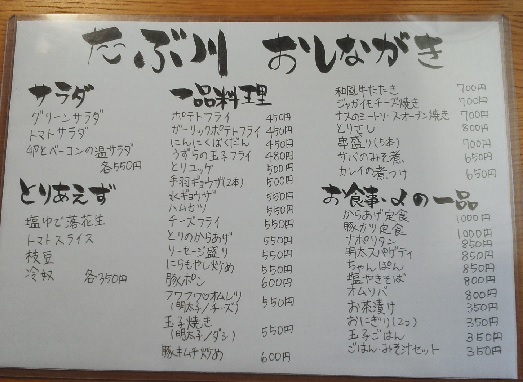 たぶ川 おしながき
サラダ
グリーンサラダ
トマトサラダ
卵とベーコンの温サラダ
各550円
とりあえず
塩ゆで落花生
トマトスライス
枝豆
冷奴 各350円
一品料理
ポテトフライ 450円
ガーリックポテトフライ 450円
にんにくほくだん 450円
うずらの玉子フライ 480円
とりユッケ 500円
手羽ギョウザ(2本) 500円
水ギョウザ 500円
ハムカツ 550円
チーズフライ 550円
とりのからあげ 550円
ソーセージ盛り 550円
にらもやし炒め 550円
豚ポン 600円
フワフワオムレツ
(明太子/チーズ) 550円
玉子焼き
(明太子/ダシ) 550円
豚キムチ炒め 600円
和風牛たたき 700円
ジャガイモチーズ焼き 700円
ナスのミートソースオーブン焼き 700円
とりさし 800円
串盛り(5本) 700円
サバのみそ煮 650円
カレイの煮つけ 650円
お食事・〆の一品
からあげ定食 1000円
豚カツ定食 1000円
ナポリタン 850円
明太スパゲティ 850円
ちゃんぽん 850円
塩やきそば 800円
オムソバ 850円
お茶漬け 350円
おにぎり(2コ) 350円
玉子ごはん 350円
ごはん・みそ汁セット 350円